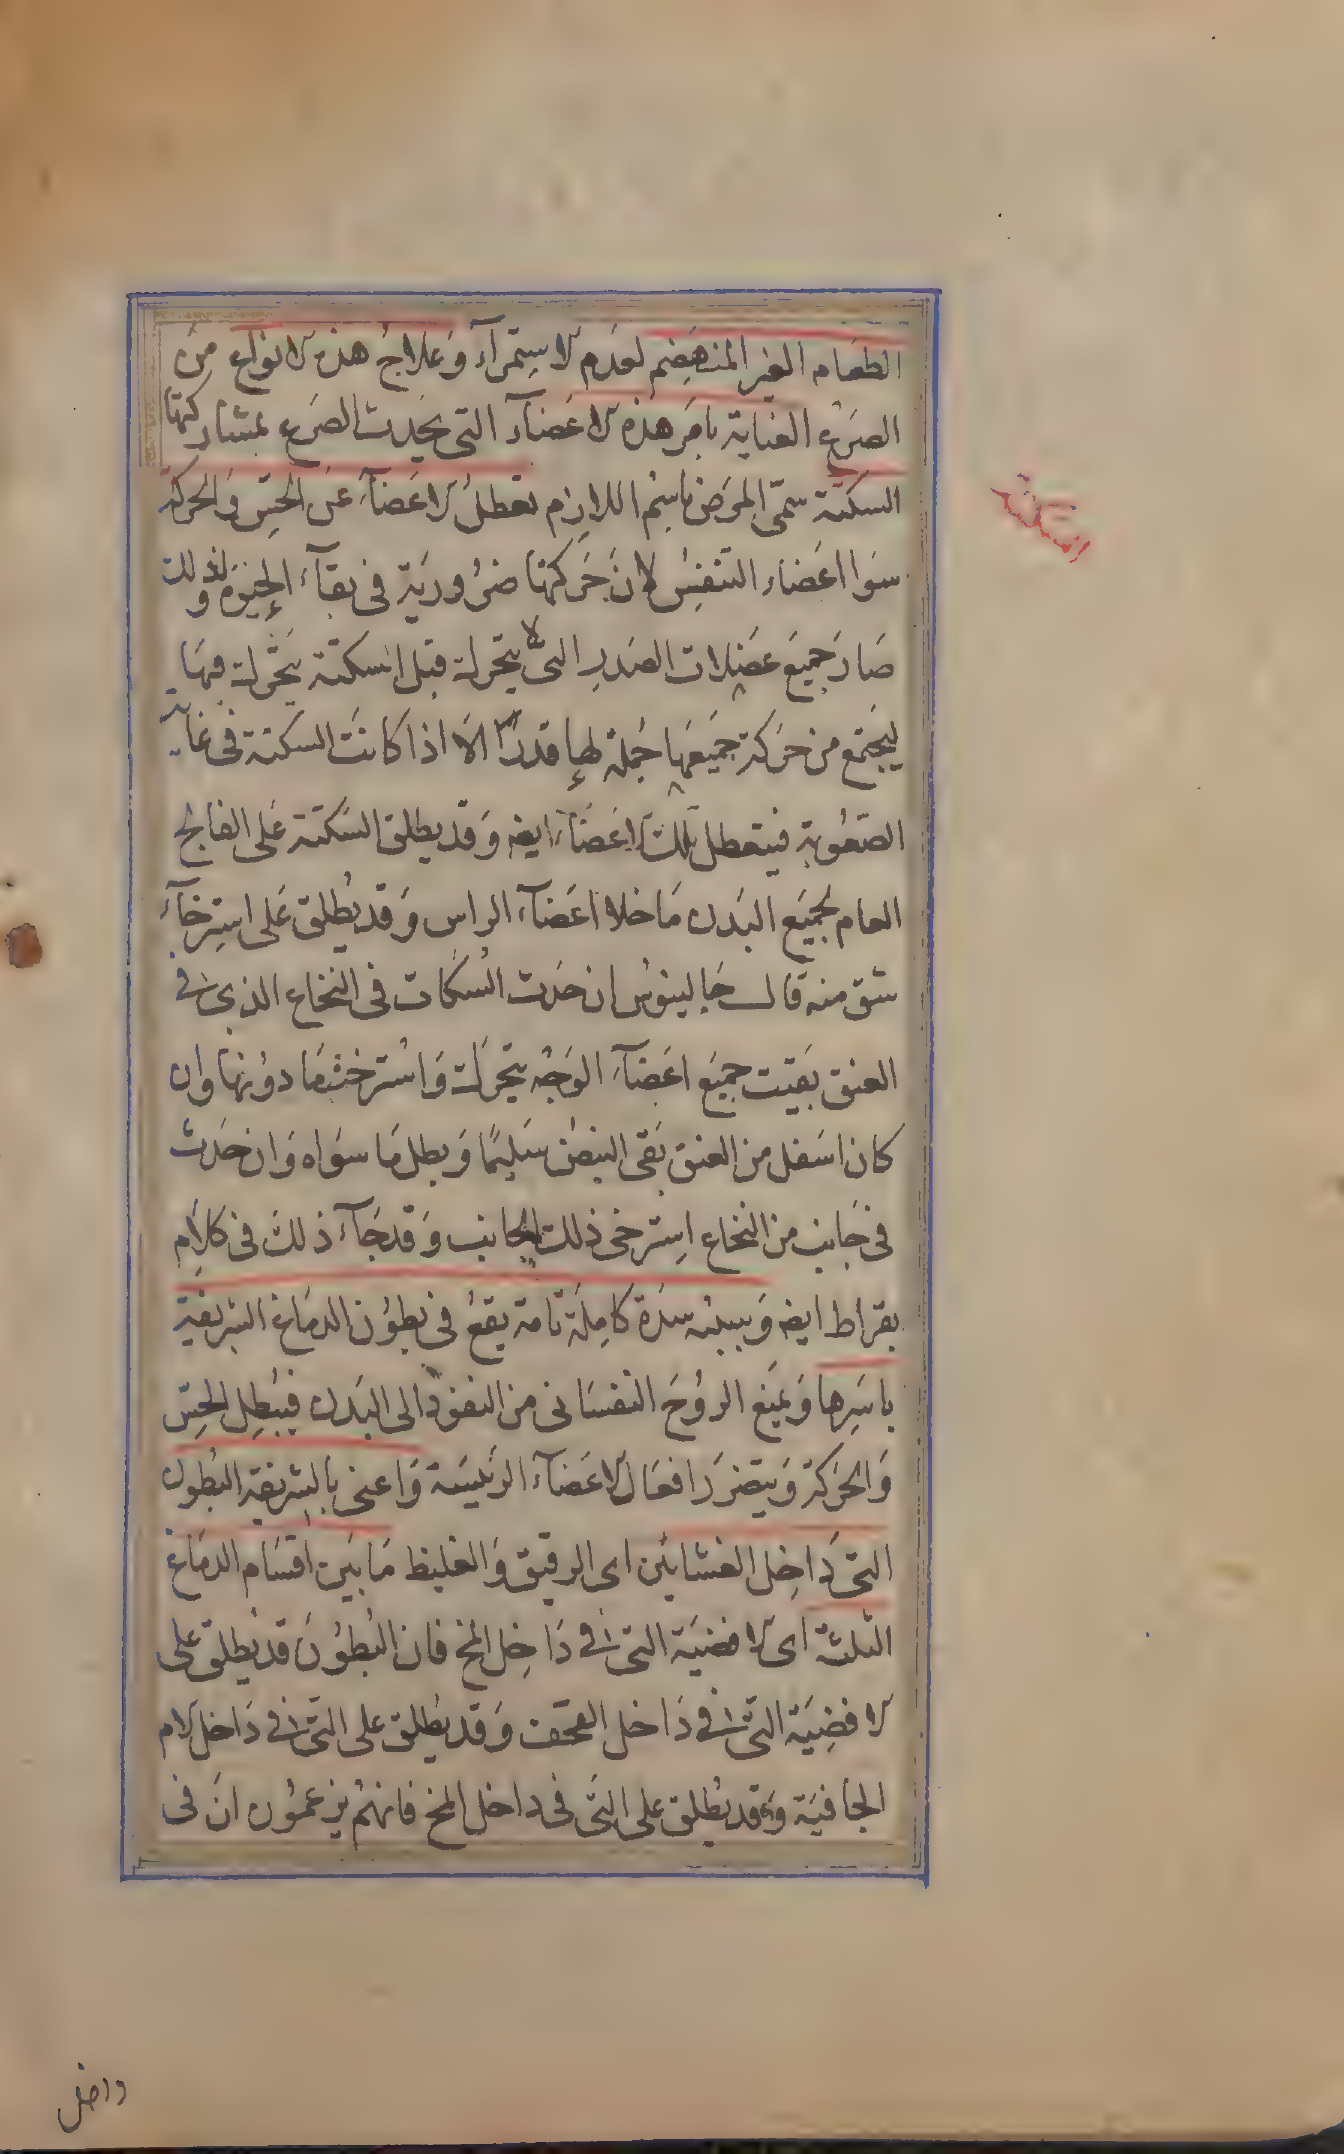 الطعام الغير المنهضِم لعدم الاستِمرآء وَعلاجُ هذه الانواع مِنَ
الصَرع العناية بامَر هذه الاعَضاآء التى يحَدث الصَرع بمشاركتها
السكتة سمّى المرَض باسْم اللازم تعطلُ الاعَضآء عَن الحسِّ وَالحركة
سوَا اعَضاء التنفسُّ لانَ حَركتها ضرُوريَة فى بقآء الحيٰوة ولذلك
صَارَ جميَع عضَلات الصَدرِ التى لا يتحرك قبل السكتة يتحَّرك فيهَا
ليَجتمع من حَركة جَميعهَا جُملة لها قدرٌ الاَ اذا كانتَ السكتة فى غاية
الصّعُوبة فيتعطل تلك الاعَضآء ايضه وَقد يطلق السَكتة عَلى الفالج
العام لجميَع البَدن مَا خلا اعَضآء الراس وَقد يُطلق عَلى استِرخآء
شق منه قال جَالينوسُ ان حَدث السُكات فى النخاع الذى فى
العنق بَقيت جميَع اعَضآء الوَجْه يتحَرك وَاسْترخت مَا دوُنها وان
كان اسَفل من العنق بَقى النبضُ سَليمًا وَبطل مَا سوَاه وَان حَدث
فى جَانب من النخاع استرخى ذلك الجانب وَقد جَآء ذلكَ فى كلاَم
بقراط ايضه وَسببُه سدَة كامِلة تامة يقعُ فى بطوُن الدمَاغ الشريفَة
باسَرِها وَيمَنع الروُحَ النفسَانى من النفوذ الى البَدن فيبُطِل الحِسّ
وَالحَركة وَيتضرَر افعَال الاعَضآء الرئيسَة وَاعنى بالشريفة البطُون
التى دَاخِل الغشايَين اى الرقيق وَالغليظ مَا بيَن اقسَام الدمَاغ
الثلثة اى الافضيَة التى فى دَاخِل المخ فان البُطوُنَ قد يُطلق على
الافضِيَة التّى فى دَاخل القحَف وَقد يطُلق على التّى فى دَاخل الام
الجَافيَة وَقد يُطلق على التّى فى داخل المخ فانهُم يزعمُون انَ فى
السكتة
داخل